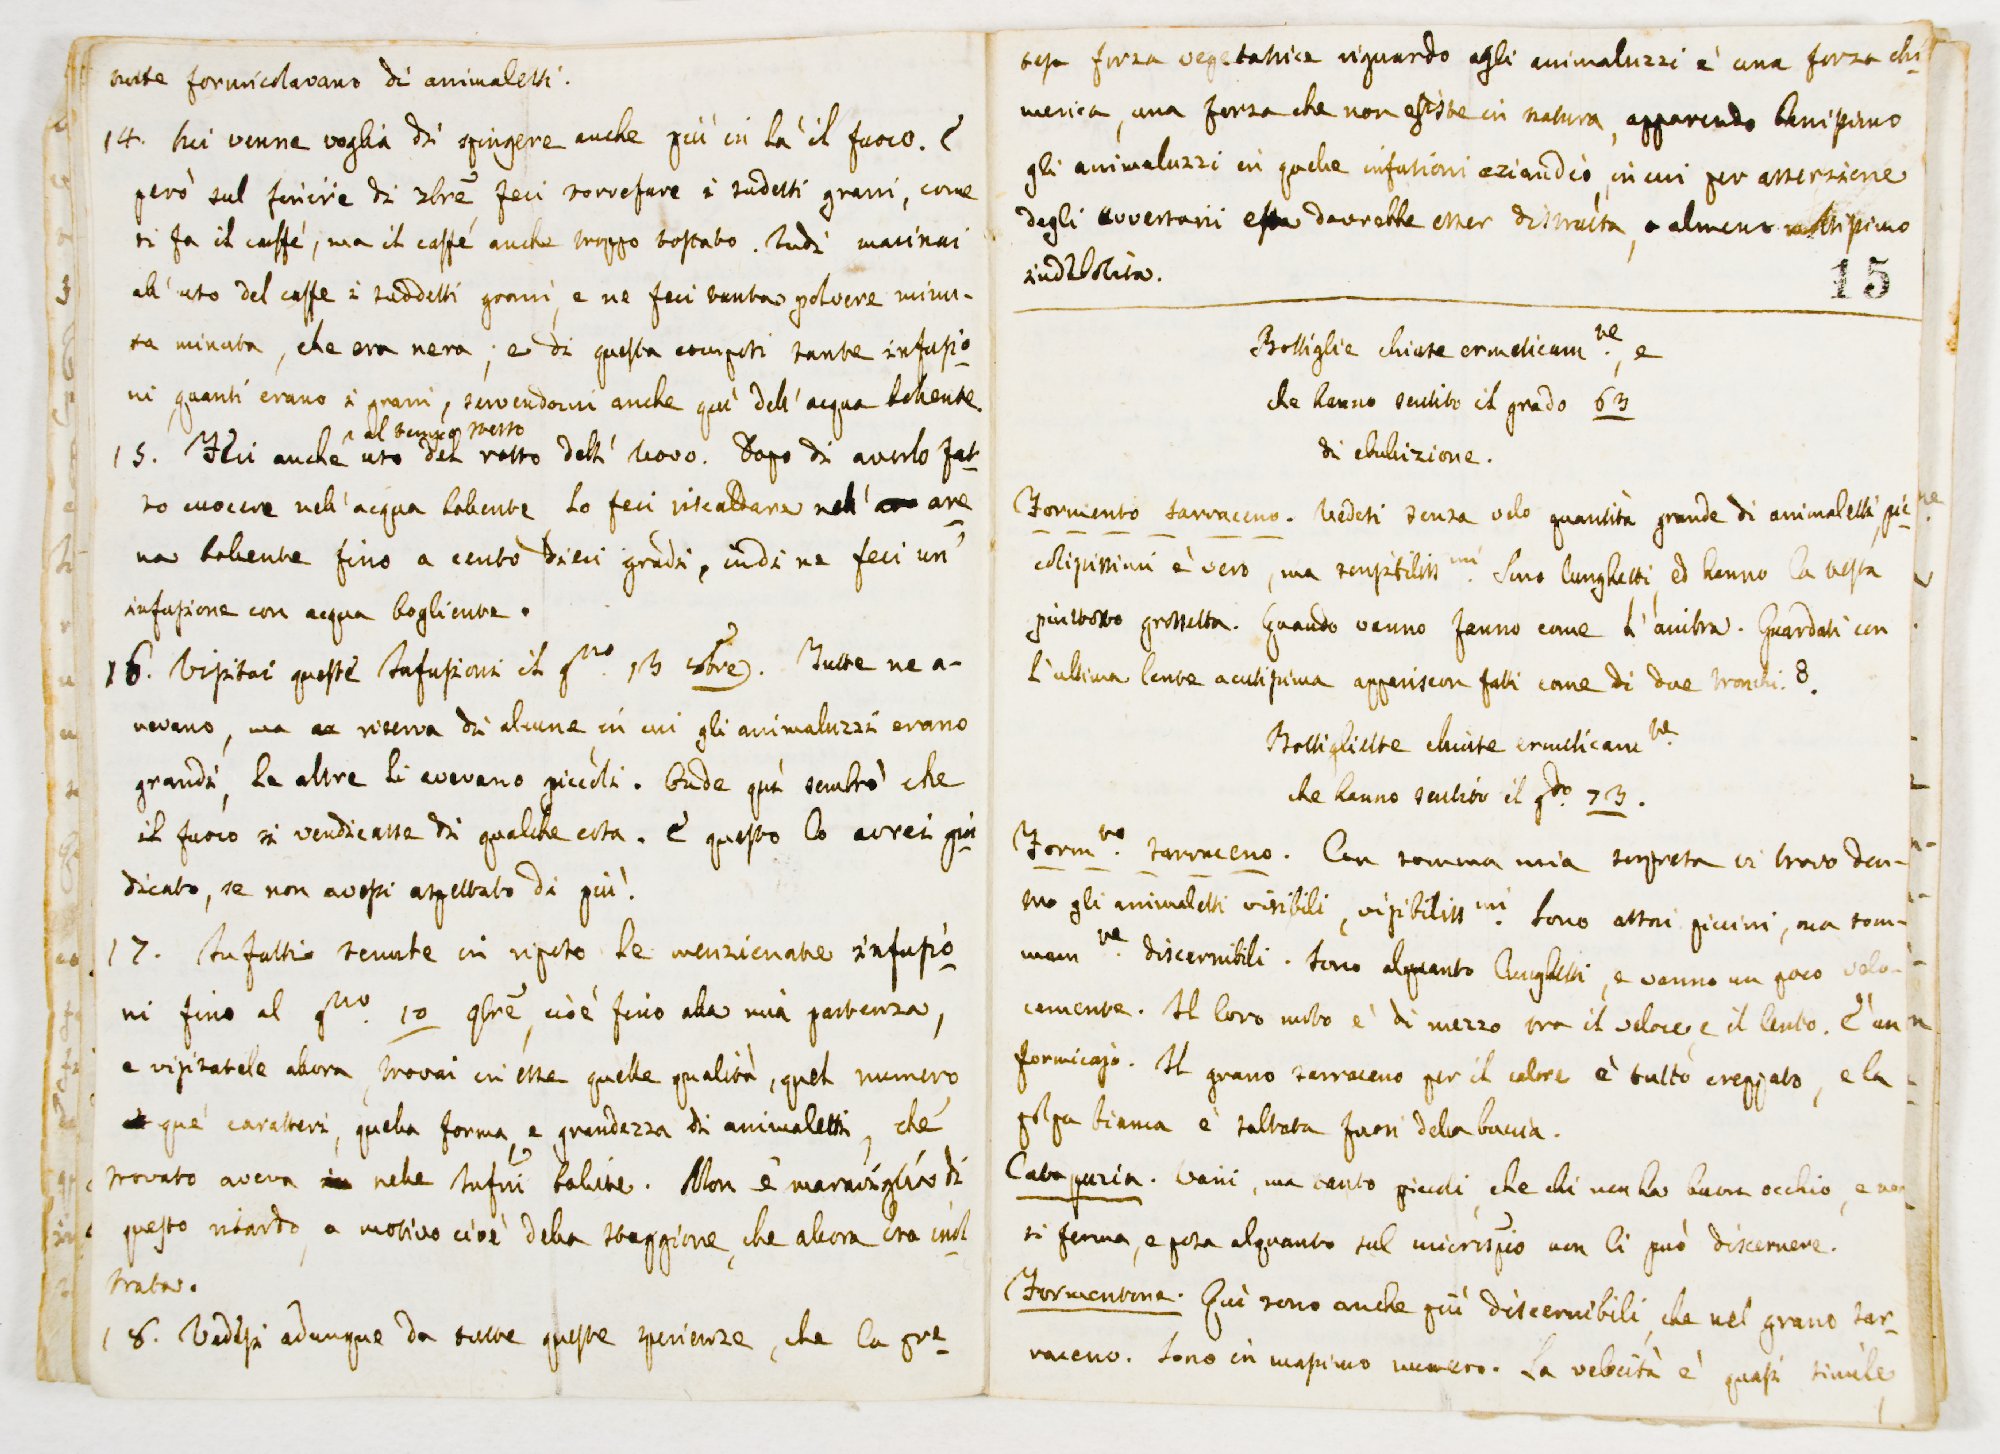 tutte formicolavano di animaletti.
14. Mi venne voglia di spingere anche più in là il fuoco. E
però sul finire di 7bre feci torrefare i sudetti grani, come
si fa il caffé, ma il caffé anche troppo tostato. Indi macinai
all'uso del caffe i suddetti grani, e ne feci tanta polvere minu-
ta minuta, che era nera; e di questa composi tante infusio
ni quanti erano i grani, servendomi anche quì dell'acqua bollente.
al tempo stesso
15. Feci anche uso del rosso dell'uovo. Dopo di averlo fat
to cuocere nell'acqua bollente lo feci riscaldare nell' are
na bollente fino a cento dieci gradi, indi ne feci un'
infusione con acqua bogliente.
16. Visitai queste Infusioni il gno. 13 8bre. Tutte ne a-
vevano, ma a riserva di alcune in cui gli animaluzzi erano
grandi, le altre li avevano piccoli. Onde quì sembrò che
il fuoco si vendicasse di qualche cosa. E questo lo avrei giu
dicato, se non avessi aspettato di più.
17. Infatti tenute in riposo le menzionate infusio
ni fino al gno. 10 9bre, cioè fino alla mia partenza,
e visitatele allora, trovai in esse quelle qualità, quel numero
que' caratteri, quella forma, e grandezza di animaletti, che
trovato aveva nelle Infni bollite. Non è maraviglia di
questo ritardo, a motivo cioè della staggione, che allora era inol
trata.
18. Vedesi adunque da tutte queste sperienze, che la pre
tesa forza vegetatrice riguardo agli animaluzzi è una forza chi
merica, una forza che non esiste in natura, apparendo benissimo
gli animaluzzi in quelle infusioni eziandio, in cui per asserzione
degli avversarii essa dovrebbe esser distrutta, o almeno moltissimo
indebolita.
15
Bottiglie chiuse ermeticamte., e
che hanno sentito il grado 63
di ebulizione.
Formento sarraceno. Vedesi senza velo quantità grande di animaletti, pic
colissimi è vero, ma sensibilissmi. Sono lunghetti, ed hanno la testa
piuttosto grossetta. Quando vanno fanno come l'anitra. Guardati con
l'ultima lente acutissima appariscon fatti come di due tronchi. 8.
Bottigliette chiuse ermeticamte.
che hanno sentito il gdo. 73.
Formto. sarraceno. Con somma mia sorpresa vi trovo den-
tro gli animaletti visibili, visibilissmi. Sono assai piccini, ma som-
mamte. discernibili. Sono alquanto lunghetti, e vanno un poco velo-
cemente. Il loro moto è di mezzo tra il veloce, e il lento. E' un
formicajo. Il grano sarraceno per il calore è tutto creppato, e la
polpa bianca è saltata fuori della buccia.
Catapuzia. Varii, ma tanto piccoli, che chi non ha buon occhio, e non
si ferma, e posa alquanto sul microspio non li può discernere.
Formentone. Quì sono anche più discernibili, che nel grano sar-
raceno. Sono in massimo numero. La velocità è quasi simile